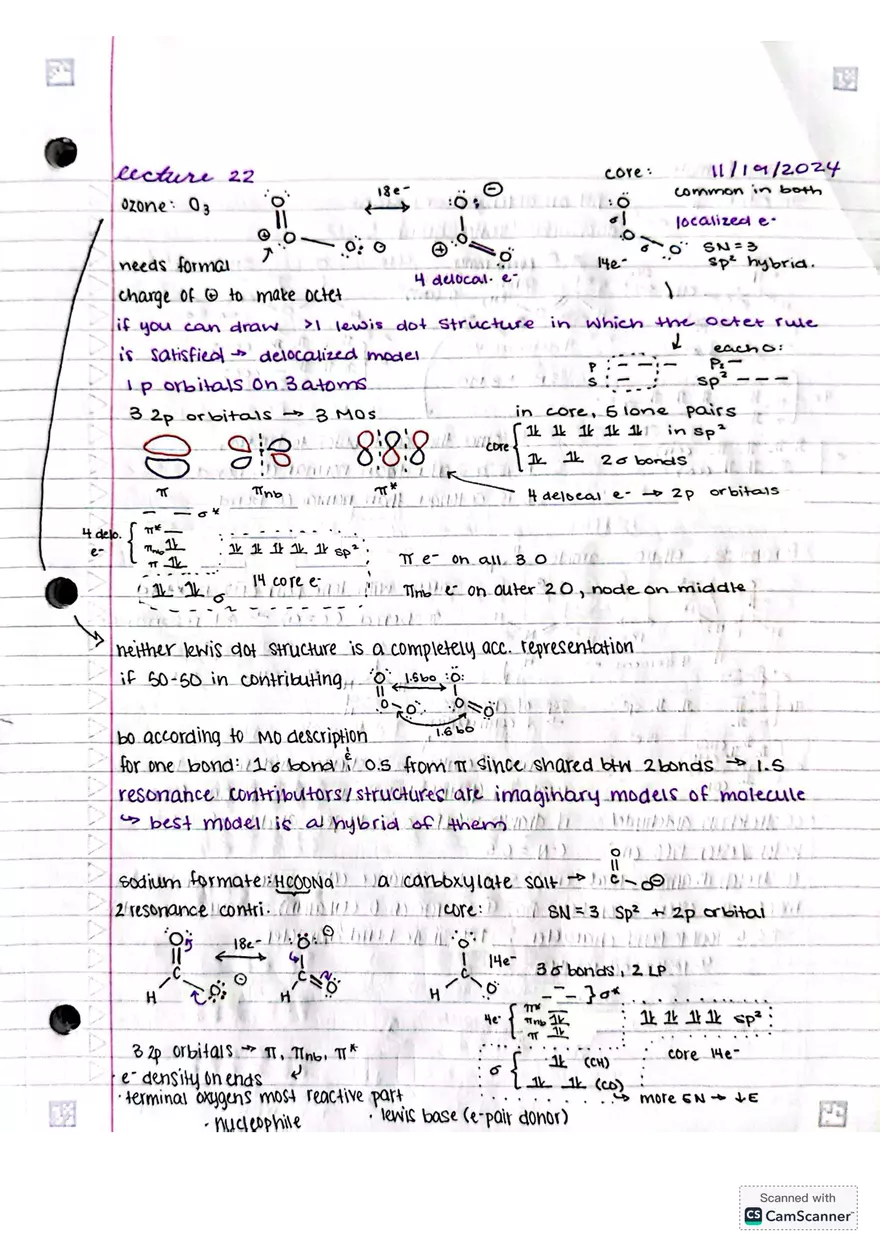 lecture 22
core: 11/19/2024
ozone: O3
18e-
common in both
localized e-
SN = 3
sp2 hybrid.
14e-
needs formal
4 delocal. e-
charge of ⊕ to make octet
if you can draw >1 lewis dot structure in which the octet rule
is satisfied → delocalized model
each O:
1 p orbitals on 3 atoms
P
S
Pz —
sp2 — — —
3 2p orbitals → 3 MOs
in core, 5 lone pairs
core
in sp2
2σ bonds
π πnb π*
4 delocal e- → 2p orbitals
σ*
4 delo.
e-
π*
πnb
π
sp2
14 core e-
σ
π e- on all 3 O
πnb e- on outer 2 O, node on middle
neither lewis dot structure is a completely acc. representation
if 50-50 in contributing,
1.5bo
1.5 bo
bo according to MO description
for one bond: 1σ bond & 0.5 from π since shared btw 2 bonds → 1.5
resonance contributors/structures are imaginary models of molecule
↳ best model is a hybrid of them
sodium formate: HCOONa a carboxylate salt →
2 resonance contri.
core:
SN = 3 sp2 + 2p orbital
18e-
14e-
3σ bonds, 2 LP
σ*
4e-
π*
πnb
π
sp2
3 2p orbitals → π, πnb, π*
σ
(CH)
core 14e-
· e- density on ends
(CO)
· terminal oxygens most reactive part
↳ more EN → ↓E
· nucleophile
· lewis base (e-pair donor)
Scanned with
CS CamScanner